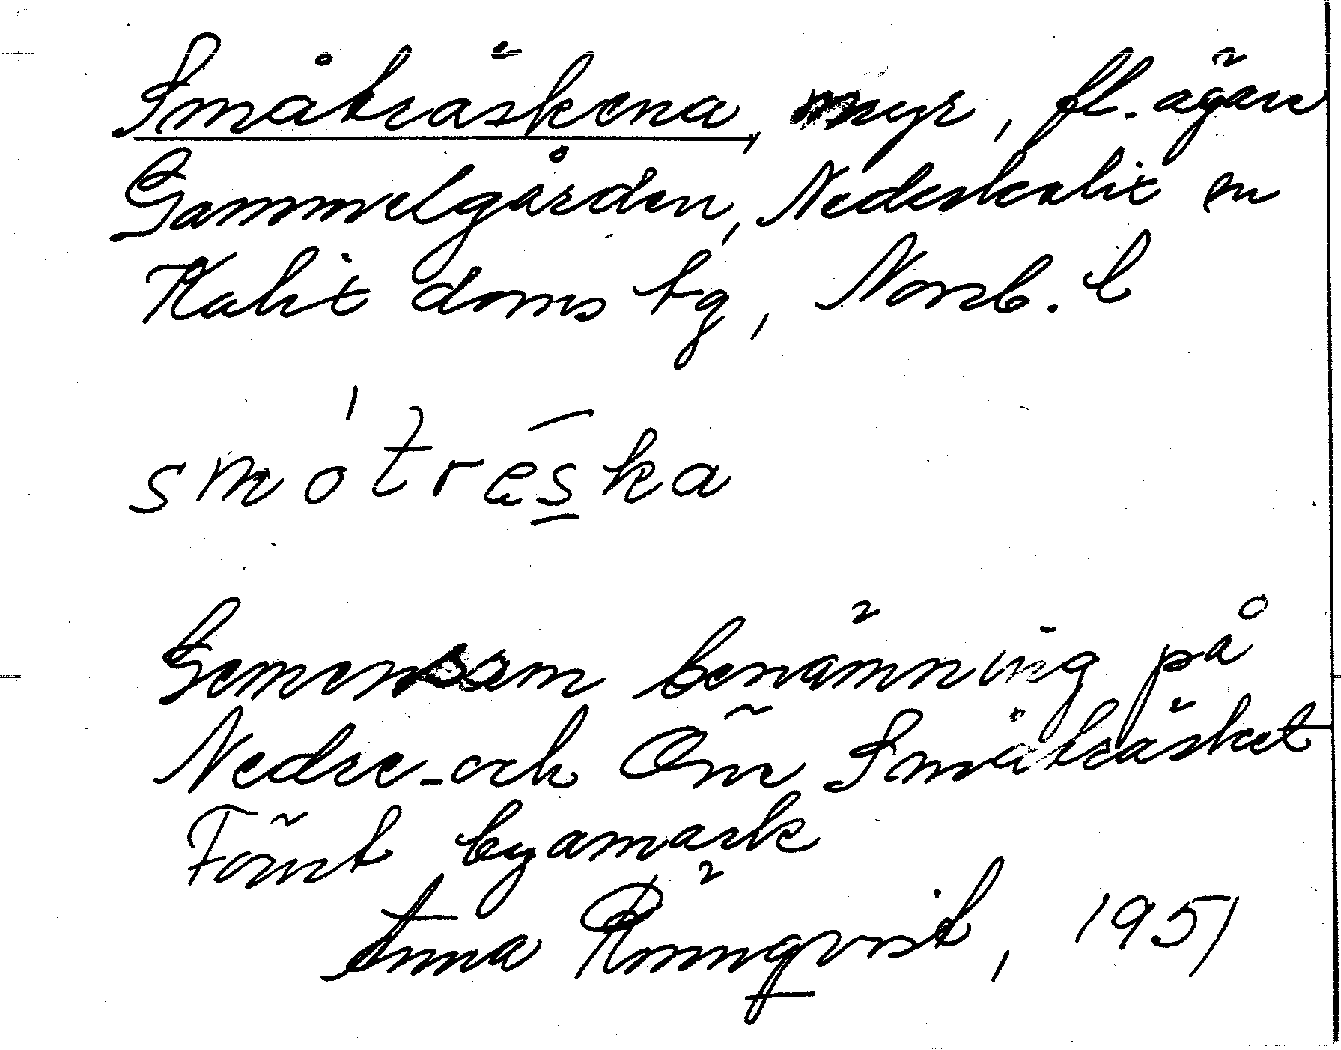 Småträskena, myr, fl. ägare
Gammelgården, Nederkalix sn
Kalix doms tg, Norrb. l
smótrēska
Gemensam benämning på
Nedre- och Övr Småträsket
Förut byamark
Anna Rönnqvist, 1951